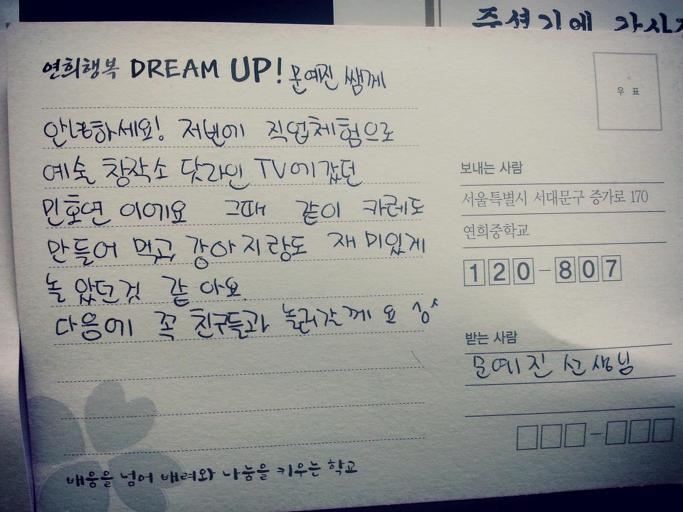 주셨기에 감사
연희행복 DREAM UP! 문예진 쌤께
우 표
안녕하세요! 저번에 직업체험으로
예술 창작소 닷라인 TV에 갔던
민호연 이에요 그때 같이 카레도
만들어 먹고, 강아지랑도 재미있게
놀았던것 같아요.
다음에 꼭 친구들과 놀러갈께요
보내는 사람
서울특별시 서대문구 증가로 170
연희중학교
120-807
받는 사람
문예진 선생님
배움을 넘어 배려와 나눔을 키우는 학교